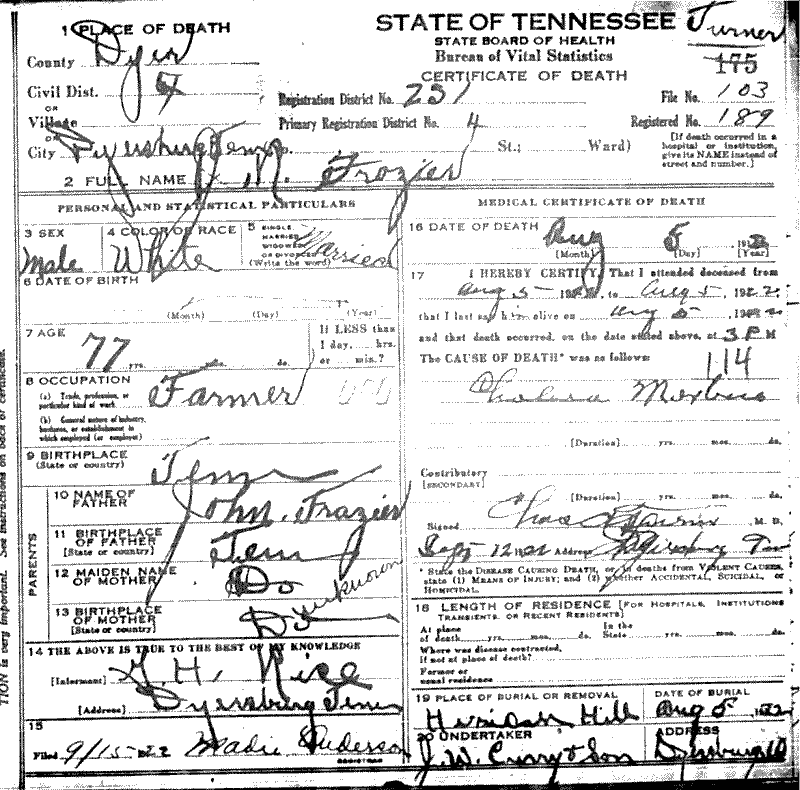 STATE OF TENNESSEE
Turner
STATE BOARD OF HEALTH
Bureau of Vital Statistics
CERTIFICATE OF DEATH
175
1 PLACE OF DEATH
County Dyer
Civil Dist.
OR
Village
OR
City Dyersburg Tenn
Registration District No. 251
File No. 103
Primary Registration District No. 4
Registered No. 189
St.; Ward)
[If death occurred in a hospital or institution, give its NAME instead of street and number.]
2 FULL NAME J. M. Frozier
PERSONAL AND STATISTICAL PARTICULARS
3 SEX
Male
4 COLOR OR RACE
White
5 SINGLE,
MARRIED,
WIDOWED,
OR DIVORCED
(Write the word)
Married
6 DATE OF BIRTH
(Month) (Day) (Year)
7 AGE
77 yrs. mos. ds.
If LESS than
1 day, hrs.
or min.?
8 OCCUPATION
(a) Trade, profession, or
particular kind of work
Farmer
(b) General nature of industry,
business, or establishment in
which employed (or employer)
9 BIRTHPLACE
(State or country)
Tenn
PARENTS
10 NAME OF
FATHER
John. Frazier
11 BIRTHPLACE
OF FATHER
[State or country]
Tenn
12 MAIDEN NAME
OF MOTHER
Do
unknown
13 BIRTHPLACE
OF MOTHER
[State or country]
Do
14 THE ABOVE IS TRUE TO THE BEST OF MY KNOWLEDGE
[Informant] H. Rice
[Address] Dyersburg Tenn
15
Filed 9/15-22 Madie Anderson
REGISTRAR
MEDICAL CERTIFICATE OF DEATH
16 DATE OF DEATH
Aug 5 192
(Month) (Day) (Year)
17 I HEREBY CERTIFY, That I attended deceased from
Aug 5 1922, to Aug 5, 1922,
that I last saw him alive on Aug 5, 1922
and that death occurred, on the date stated above, at 3 P M
The CAUSE OF DEATH* was as follows:
114
Cholera Morbus
[Duration] yrs. mos. ds.
Contributory
[SECONDARY]
[Duration] yrs. mos. ds.
Signed Chas M. D.
Sept 12 1922 Address Dyersburg Tn
* State the DISEASE CAUSING DEATH, or, in deaths from VIOLENT CAUSES,
state (1) MEANS OF INJURY; and (2) whether ACCIDENTAL, SUICIDAL, or
HOMICIDAL.
18 LENGTH OF RESIDENCE [FOR HOSPITALS, INSTITUTIONS
TRANSIENTS, OR RECENT RESIDENTS]
At place
of death yrs. mos. ds.
In the
State yrs. mos. ds.
Where was disease contracted,
if not at place of death?
Former or
usual residence
19 PLACE OF BURIAL OR REMOVAL
Hill
DATE OF BURIAL
Aug 5 1922
20 UNDERTAKER
J. W. Curry & Son
ADDRESS
Dyersburg
TION is very important. See instructions on back of certificate.